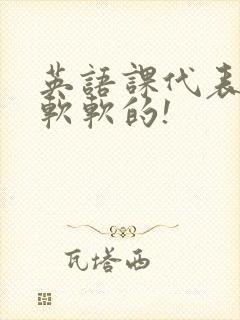 英語課代表
軟軟的!
瓦塔西